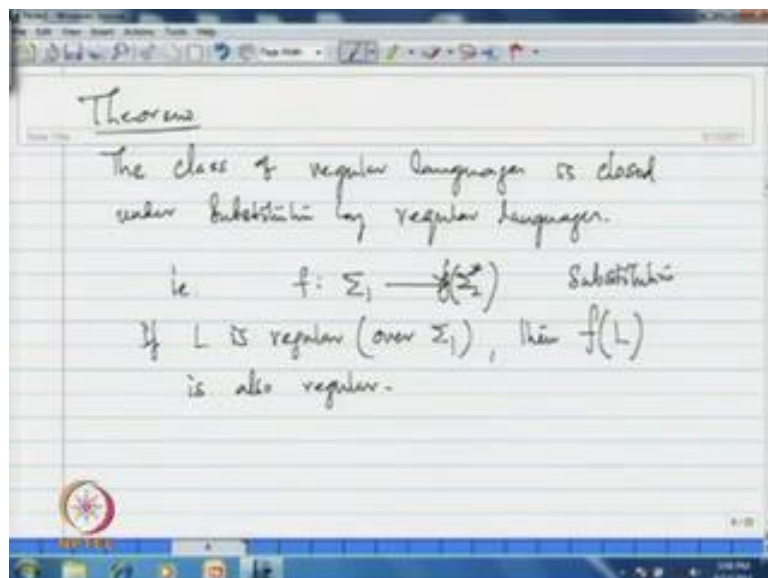 Theorem
The class of regular languages is closed
under Substitution by regular languages.
ie f: Σ₁ ⟶ 𝒫(Σ₂*) Substitution
If L is regular (over Σ₁), then f(L)
is also regular.
NPTEL